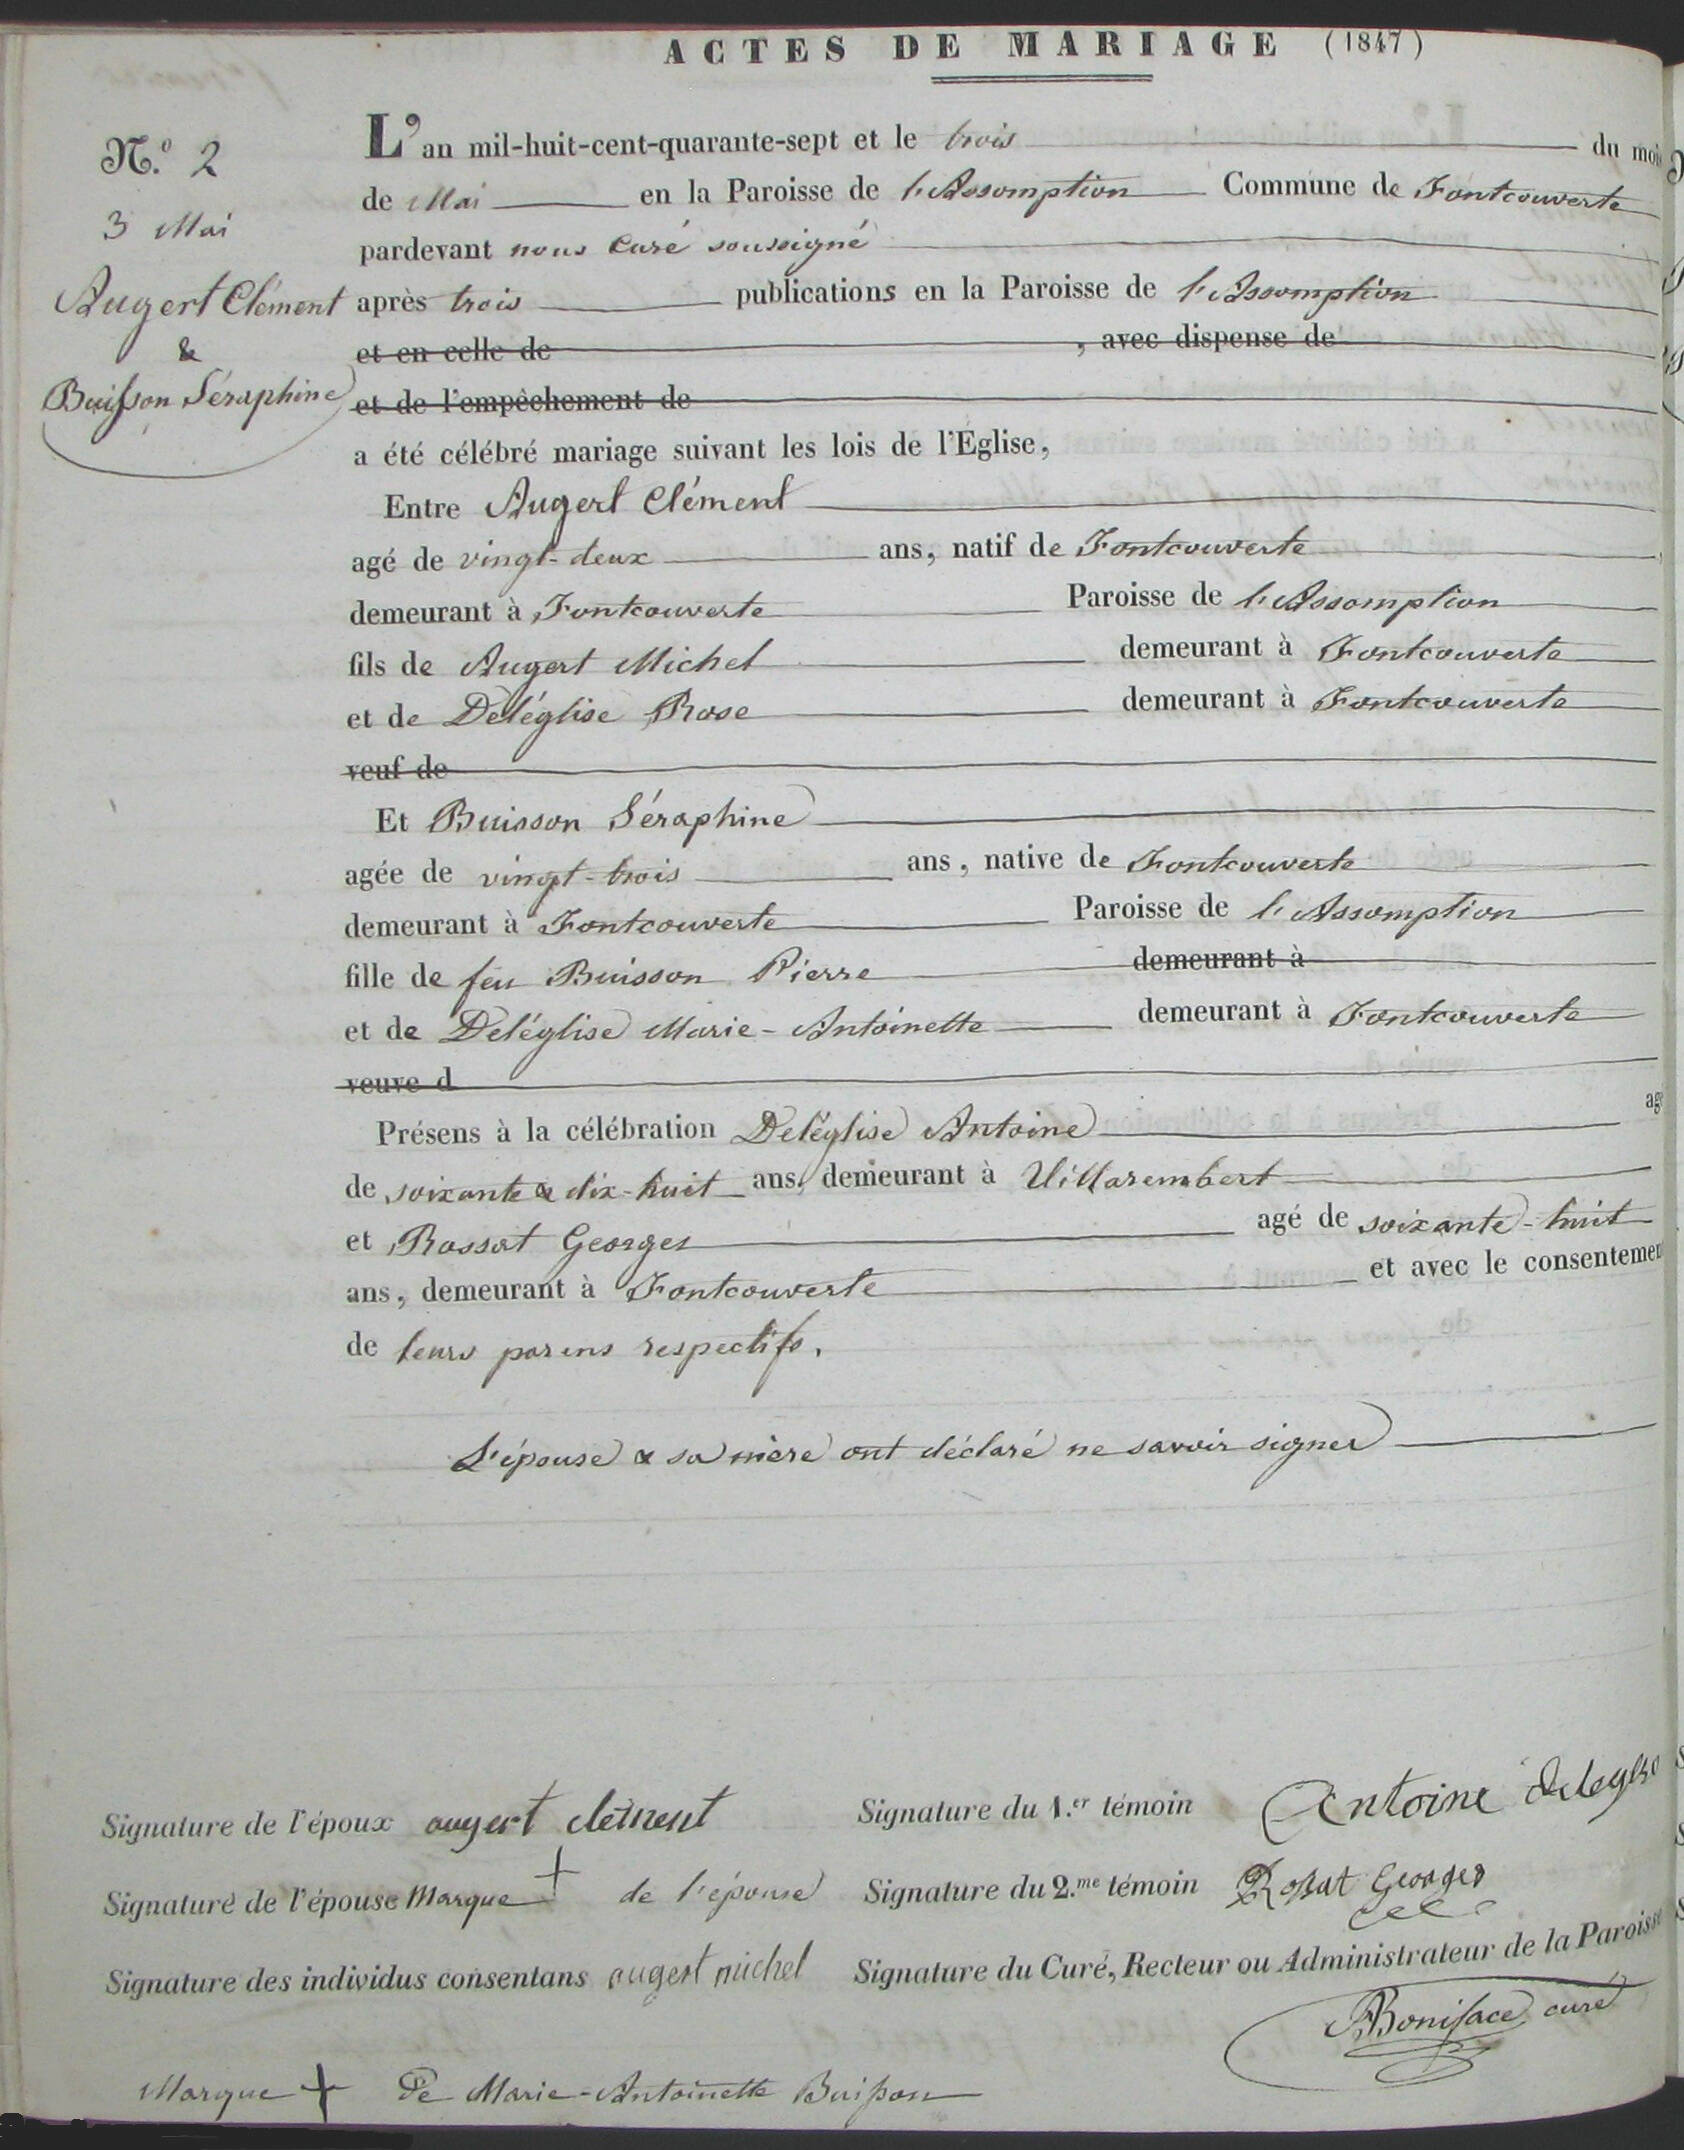 ACTES DE MARIAGE (1847)
N.º 2
3 Mai
Augert Clément
&
Buisson Séraphine
L'an mil-huit-cent-quarante-sept et le trois du mois
de Mai en la Paroisse de l'Assomption Commune de Fontcouverte
pardevant nous Curé soussigné
après trois publications en la Paroisse de l'Assomption
et en celle de , avec dispense de
et de l'empêchement de
a été célébré mariage suivant les lois de l'Église,
Entre Augert Clément
agé de vingt-deux ans, natif de Fontcouverte
demeurant à Fontcouverte Paroisse de l'Assomption
fils de Augert Michel demeurant à Fontcouverte
et de Deléglise Rose demeurant à Fontcouverte
veuf de
Et Buisson Séraphine
agée de vingt-trois ans, native de Fontcouverte
demeurant à Fontcouverte Paroisse de l'Assomption
fille de feu Buisson Pierre demeurant à
et de Deléglise Marie-Antoinette demeurant à Fontcouverte
veuve d
Présens à la célébration Deléglise Antoine ag
de soixante & dix-huit ans, demeurant à Villarembert
et Rossat Georges agé de soixante-huit
ans, demeurant à Fontcouverte et avec le consentemen
de leurs parens respectifs.
L'épouse & sa mère ont déclaré ne savoir signer
Signature de l'époux augert clement Signature du 1.er témoin Antoine
Signature de l'épouse Marque + de l'épouse Signature du 2.me témoin Rossat Georges
Signature des individus consentans augert michel Signature du Curé, Recteur ou Administrateur de la Paroisse
Boniface curé
Marque + De Marie-Antoinette Buisson